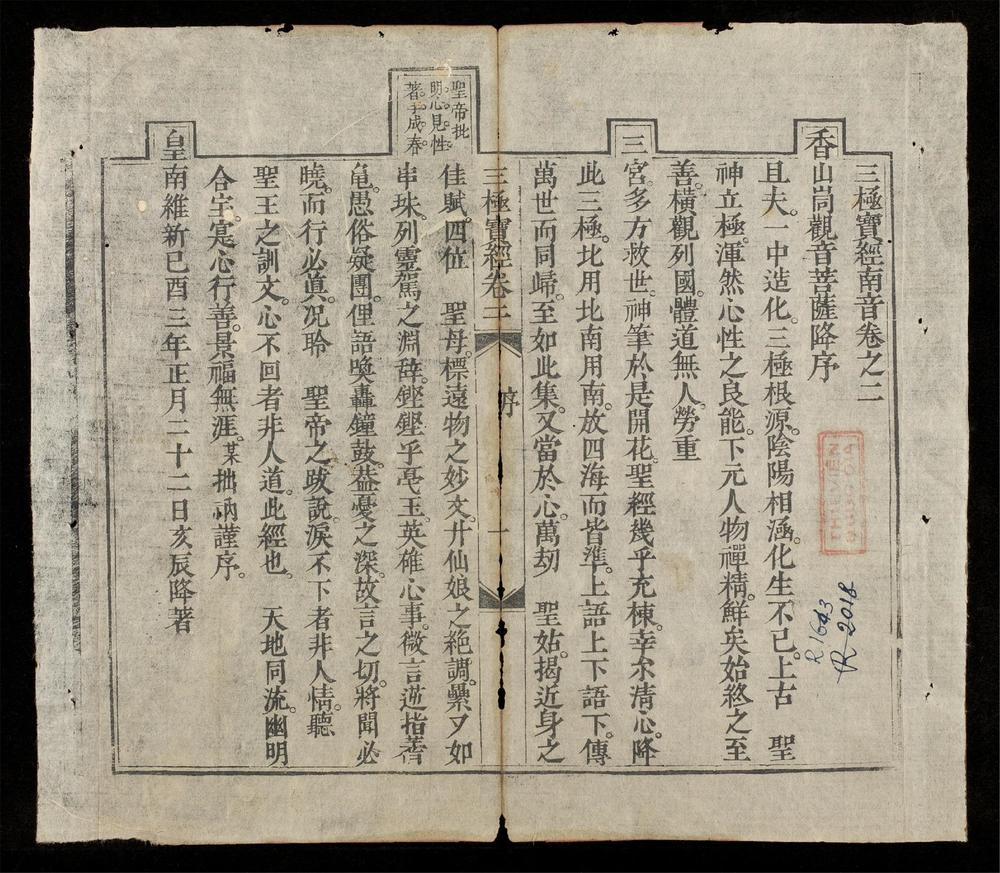 三極寶經南音卷之二
香山峝觀音菩薩降序
且夫。一中造化。三極根源。陰陽相涵。化生不已。上古 聖
神立極。渾然心性之良能。下元人物禪精。鮮矣始終之至
善。橫觀列國。體道無人。勞重
三宮。多方救世。神筆於是開花。聖經幾乎充棟。幸尒清心。降
此三極。北用北南用南。放四海而皆準。上語上下語下。傳
萬世而同歸。至如此集。又當於心。萬刼 聖姑。揭近身之
三極寶經卷二 序 一
聖帝批
明心見性。
著手成春
佳賦。四位 聖母。標遠物之妙文。廾仙娘之絕調。纍又如
串珠。列靈駕之淵辞。鏗鏗乎亳玉。英確心事。微言逆指。善
亀愚俗疑團。俚語喚轟鐘鼓。葢憂之深。故言之切。將聞必
曉。而行必眞。况聆 聖帝之跋說。淚不下者非人情。聽
聖王之訓文。心不回者非人道。此經也。 天地同流。幽明
合宇。寔心行善。景福無涯。某拙訥謹序。
皇南維新己酉三年正月二十二日亥辰降著
R.1643
R 2018